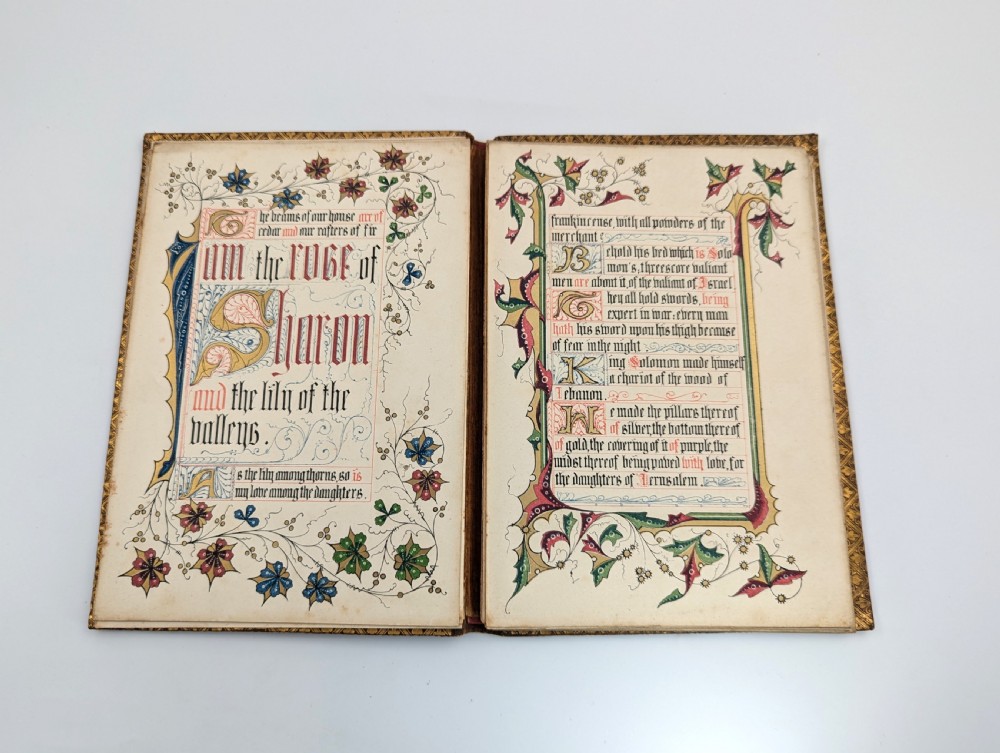 The beams of our house are of
cedar and our rafters of fir
I am the rose of
Sharon
and the lily of the
valleys.
As the lily among thorns, so is
my love among the daughters.
frankincense, with all powders of the
merchant?
Behold his bed which is Solo
mon's, threescore valiant
men are about it, of the valiant of Israel
They all hold swords, being
expert in war: every man
hath his sword upon his thigh because
of fear in the night
King Solomon made himself
a chariot of the wood of
Lebanon.
He made the pillars thereof
of silver, the bottom thereof
of gold, the covering of it of purple, the
midst thereof being paved with love, for
the daughters of Jerusalem